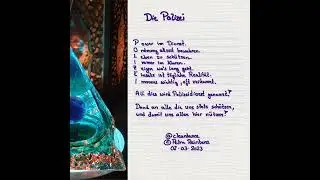 Die Polizei
Power im Dienst.
Ordnung allzeit bewahren.
Leben zu schützen.
Immer im Klaren.
Zeigen wo's lang geht.
Einsatz ist tägliche Realität.
Immens wichtig, oft verkannt.
All dies wird Polizeidienst genannt!
Dank an alle die uns stets schützen,
und damit uns allen hier nützen!
@cleanteare
© Petra
02-03-2023